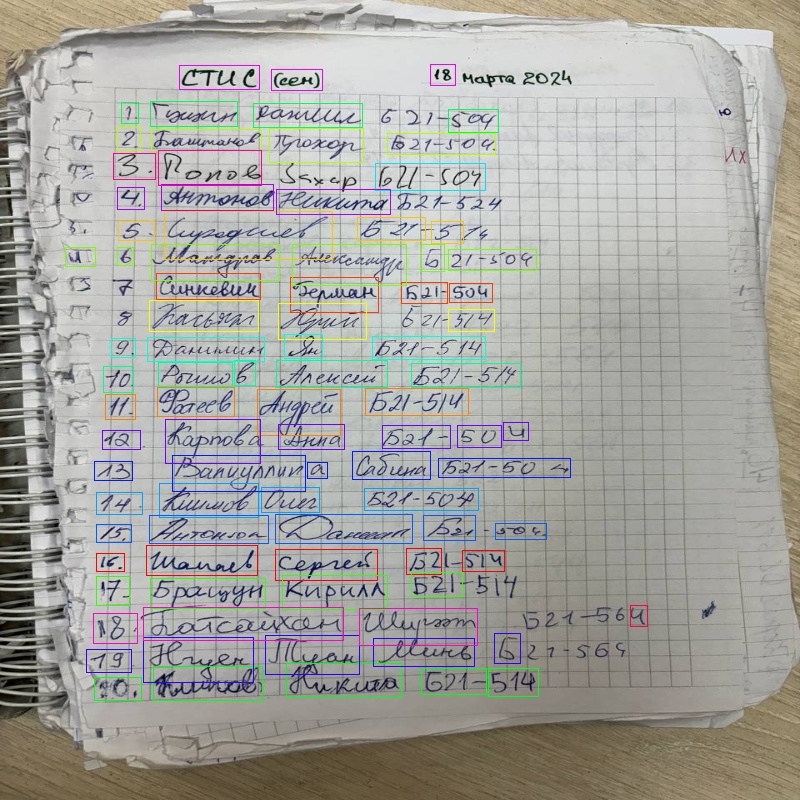 СТИС (сем) 18 марта 2024
1. Б21-504
2. Башманов Прохор Б21-504
3. Попов Захар Б21-504
4. Антонов Никита Б21-524
5. Б21-514
6 Александр Б21-504
7 Синкевич Герман Б21-504
8 Касьян Юрий Б21-514
9. Данилин Ян Б21-514
10. Рыжов Алексей Б21-514
11. Фатеев Андрей Б21-514
12. Карпова Анна Б21-504
13 Валиуллина Сабина Б21-504
14. Климов Олег Б21-504
15. Антонюк Б21-504
16. Шамаев Сергей Б21-514
17. Бращун Кирилл Б21-514
18. Батсайхан Б21-564
19 Нгуен Туан Минь Б21-564
20. Никита Б21-514